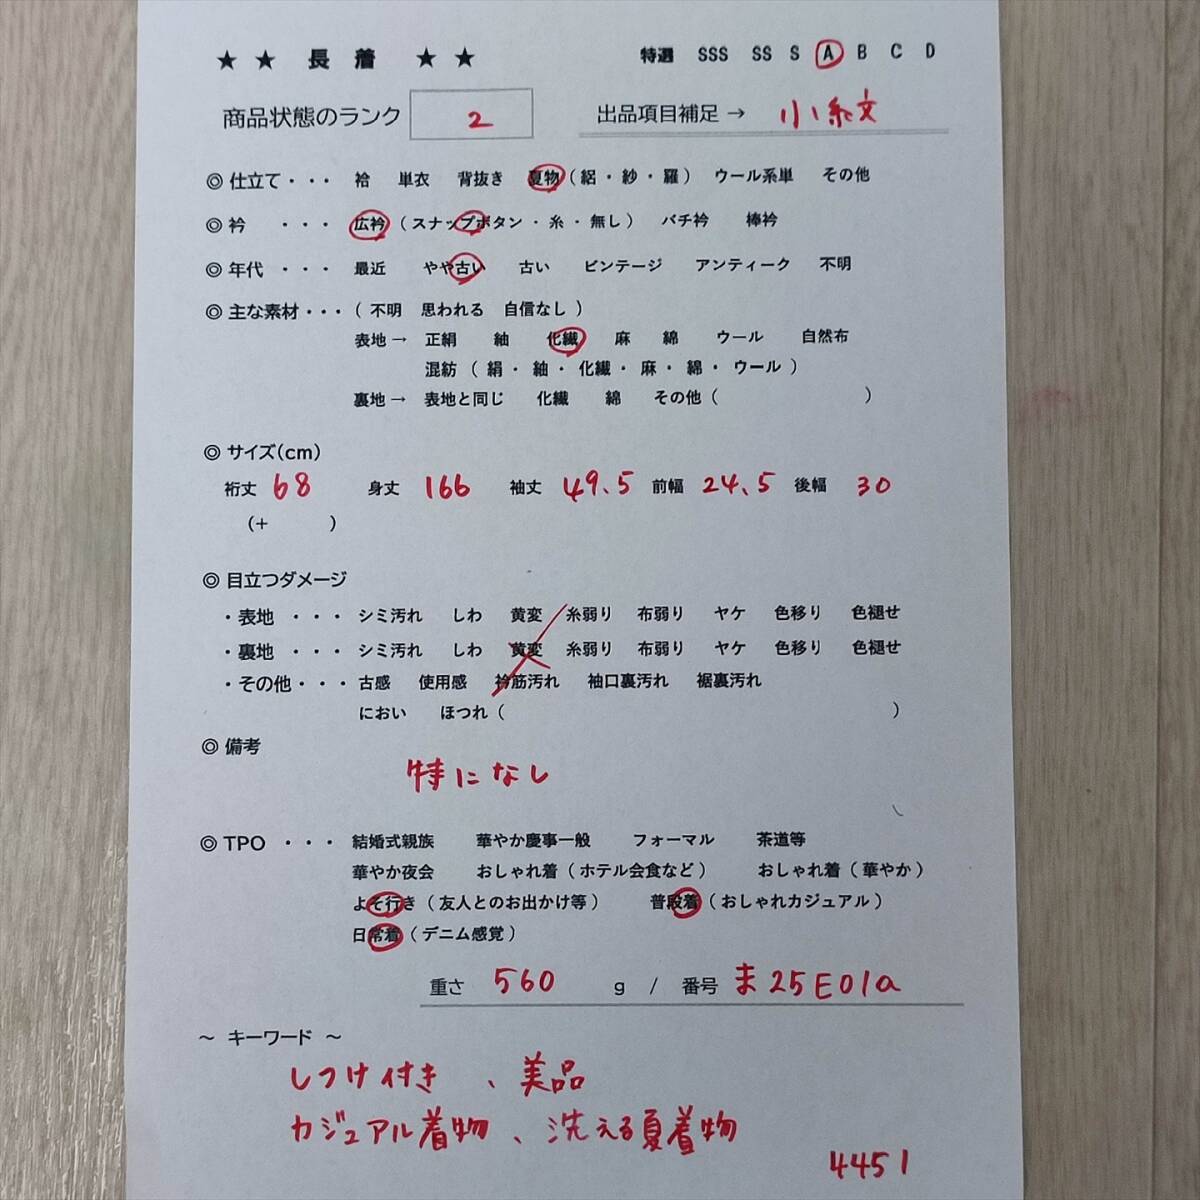 ★ ★ 長 着 ★ ★ 特選 SSS SS S A B C D
商品状態のランク 2 出品項目補足 → 小紋
◎ 仕立て・・・ 袷 単衣 背抜き 夏物 ( 絽 ・ 紗 ・ 羅 ) ウール系単 その他
◎ 衿 ・・・ 広衿 ( スナップボタン ・ 糸 ・ 無し ) バチ衿 棒衿
◎ 年代 ・・・ 最近 やや古い 古い ビンテージ アンティーク 不明
◎ 主な素材・・・ ( 不明 思われる 自信なし )
表地 → 正絹 紬 化繊 麻 綿 ウール 自然布
混紡 ( 絹 ・ 紬 ・ 化繊 ・ 麻 ・ 綿 ・ ウール )
裏地 → 表地と同じ 化繊 綿 その他 ( )
◎ サイズ(cm)
裄丈 68 身丈 166 袖丈 49.5 前幅 24.5 後幅 30
(+ )
◎ 目立つダメージ
・表地 ・・・ シミ汚れ しわ 黄変 糸弱り 布弱り ヤケ 色移り 色褪せ
・裏地 ・・・ シミ汚れ しわ 黄変 糸弱り 布弱り ヤケ 色移り 色褪せ
・その他・・・ 古感 使用感 衿筋汚れ 袖口裏汚れ 裾裏汚れ
におい ほつれ ( )
◎ 備考
特になし
◎ TPO ・・・ 結婚式親族 華やか慶事一般 フォーマル 茶道等
華やか夜会 おしゃれ着 ( ホテル会食など ) おしゃれ着 ( 華やか )
よそ行き ( 友人とのお出かけ等 ) 普段着 ( おしゃれカジュアル )
日常着 ( デニム感覚 )
重さ 560 g / 番号 ま25E01a
～ キーワード ～
しつけ付き 、美品
カジュアル着物 、洗える夏着物
4451